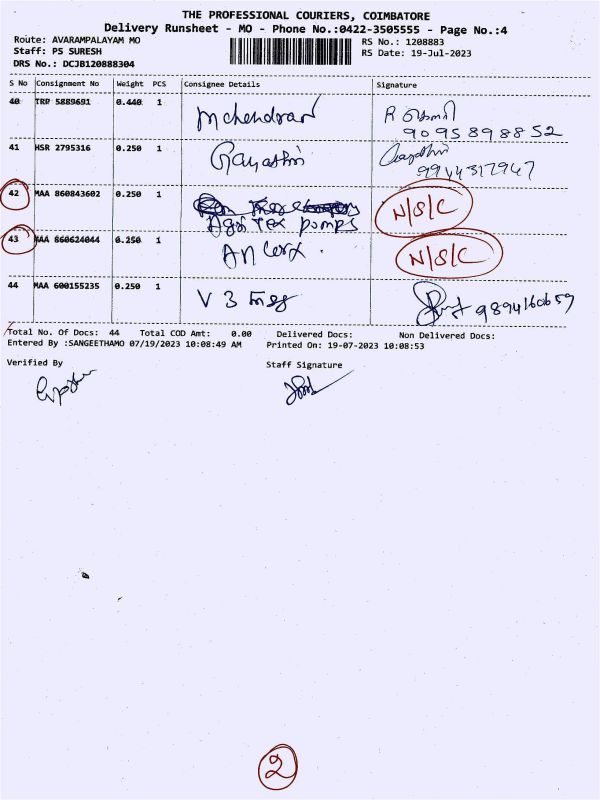 THE PROFESSIONAL COURIERS, COIMBATORE
Delivery Runsheet - MO - Phone No.:0422-3505555 - Page No.:4
Route: AVARAMPALAYAM MO
RS No.: 1208883
Staff: PS SURESH
RS Date: 19-Jul-2023
DRS No.: DCJB120888304
S No Consignment No Weight PCS Consignee Details Signature
40 TRP 5889691 0.440 1 Mahendran
9095898852
41 HSR 2795316 0.250 1 Gayathri Gayathri
9944317947
42 MAA 860843602 0.250 1 N/S/C
Agri Tex pumps
43 MAA 860624044 0.250 1 N/S/C
44 MAA 600155235 0.250 1 V 3 9894160659
Total No. Of Docs: 44 Total COD Amt: 0.00 Delivered Docs: Non Delivered Docs:
Entered By :SANGEETHAMO 07/19/2023 10:08:49 AM Printed On: 19-07-2023 10:08:53
Verified By Staff Signature
2